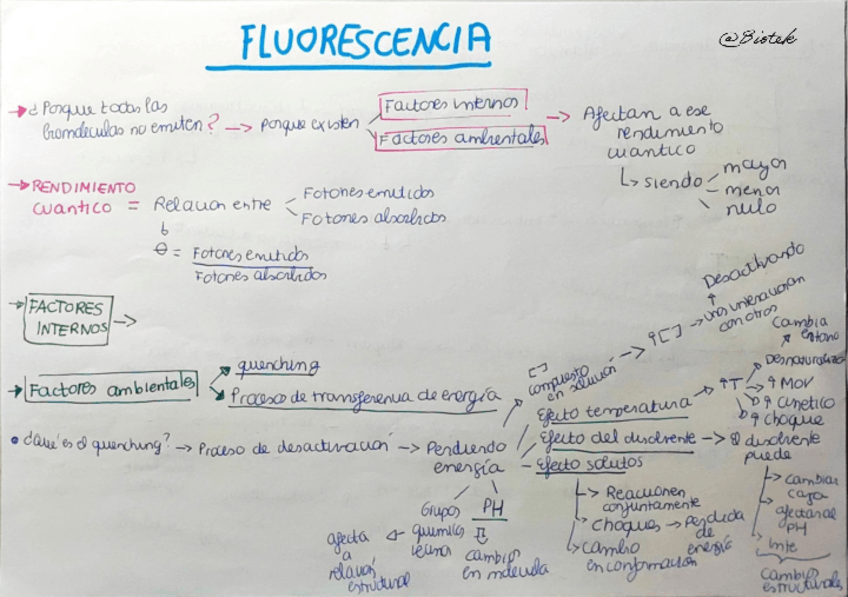 FLUORESCENCIA
@Biotek
→ ¿Porque todas las
biomoleculas no emiten? → Porque existen
Factores internos
Factores ambientales
→ Afectan a ese
rendimiento
cuantico
↳ siendo
mayor
menor
nulo
→ RENDIMIENTO
CUANTICO = Relacion entre
Fotones emitidos
Fotones absorbidos
θ = Fotones emitidos
Fotones absorbidos
→ FACTORES
INTERNOS →
→ Factores ambientales
quenching
Proceso de transferencia de energía
• ¿Qué es el quenching? → Proceso de desactivación → Perdiendo
energía
[ ]
compuesto
en solución → ↑[ ] → unos interaccionan
con otros
↑
Desactivando
Efecto temperatura → ↑T
Desnaturaliza
Cambia
entorno
↑ Mov
↑ cinetico
↑ choque
Efecto del disolvente → El disolvente
puede
cambiar
carga
afectar al
PH
Inte
cambios
estructurales
Efecto solutos
↳ Reaccionen
conjuntamente
choques → Perdida
de
energía
cambio
en conformación
Grupos
quimicos
afecta
a
relación
estructural
PH
cambios
en molecula